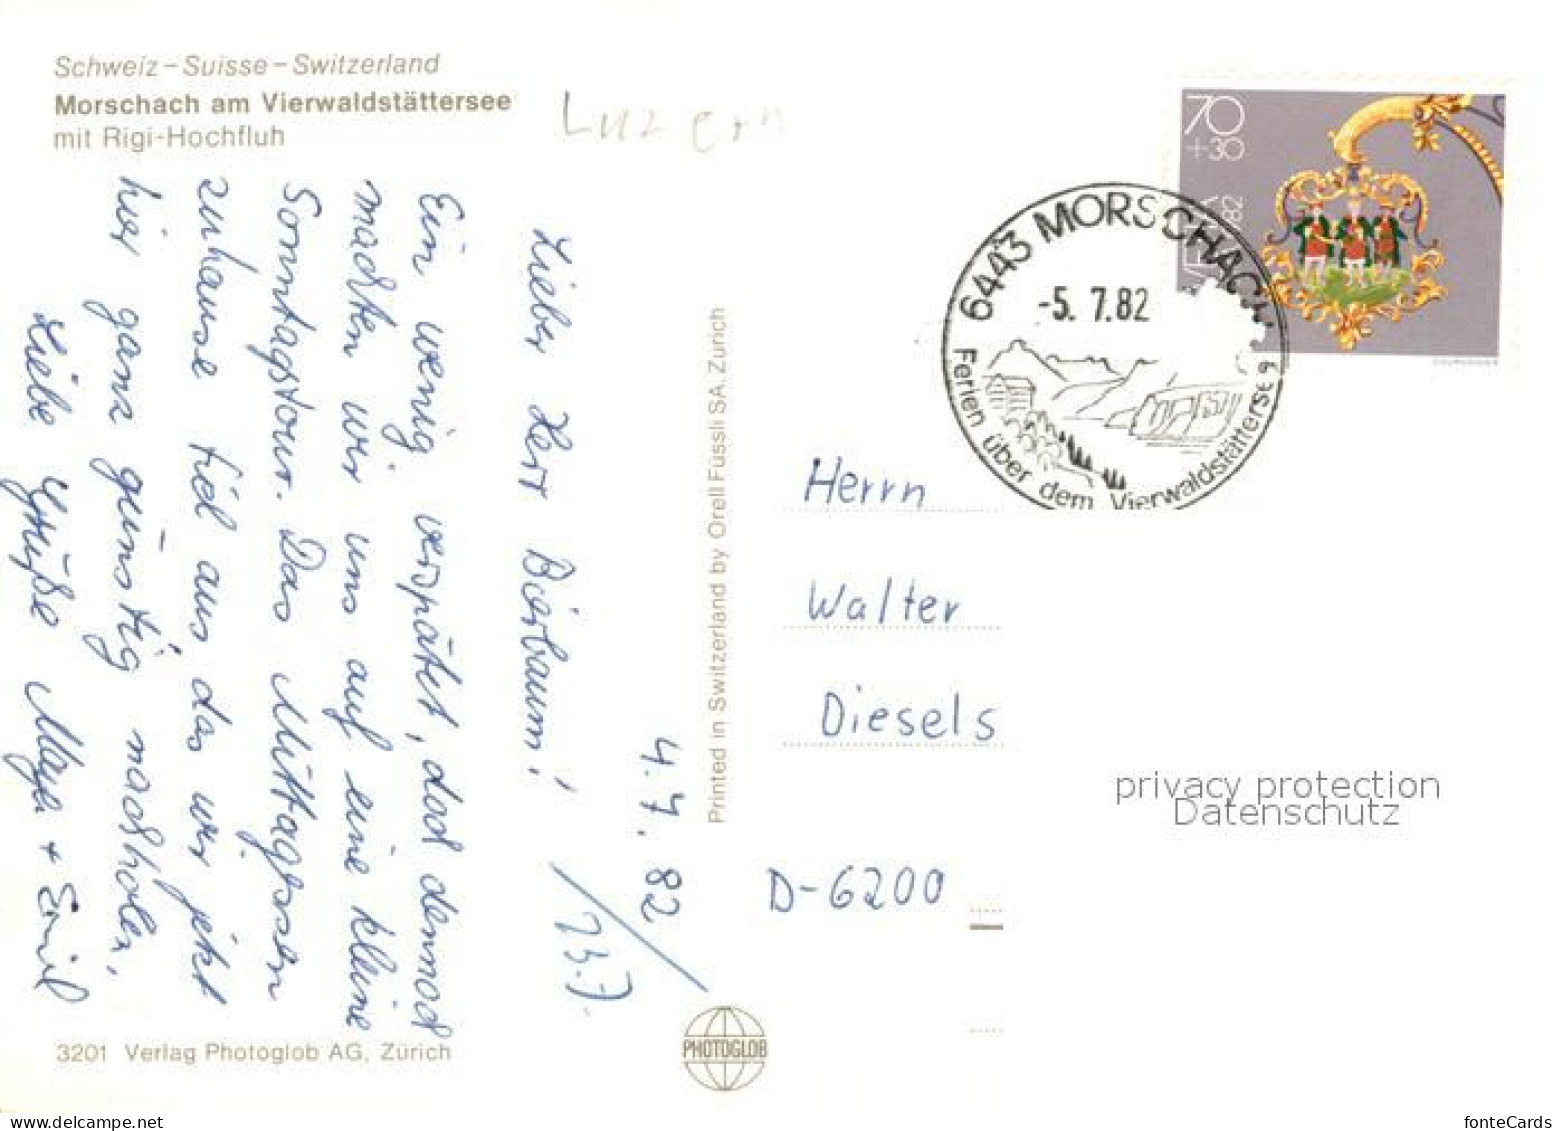 Schweiz – Suisse – Switzerland
Morschach am Vierwaldstättersee
mit Rigi-Hochfluh
Luzern
4.7.82
Lieber Herr Bierbaum!
Ein wenig verspätet, doch dennoch
machten wir uns auf eine kleine
Sonntagstour. Das Mittagessen
zuhause fiel aus das wir jetzt
hier ganz günstig nachholen,
Liebe Grüße Maya + Emil
23.7.
Printed in Switzerland by Orell Füssli SA, Zürich
3201 Verlag Photoglob AG, Zürich
PHOTOGLOB
70
+30
82
6443 MORSCHACH
-5. 7.82
Ferien über dem Vierwaldstätterse
Herrn
Walter
Diesels
D-6200
privacy protection
Datenschutz
www.delcampe.net
fonteCards